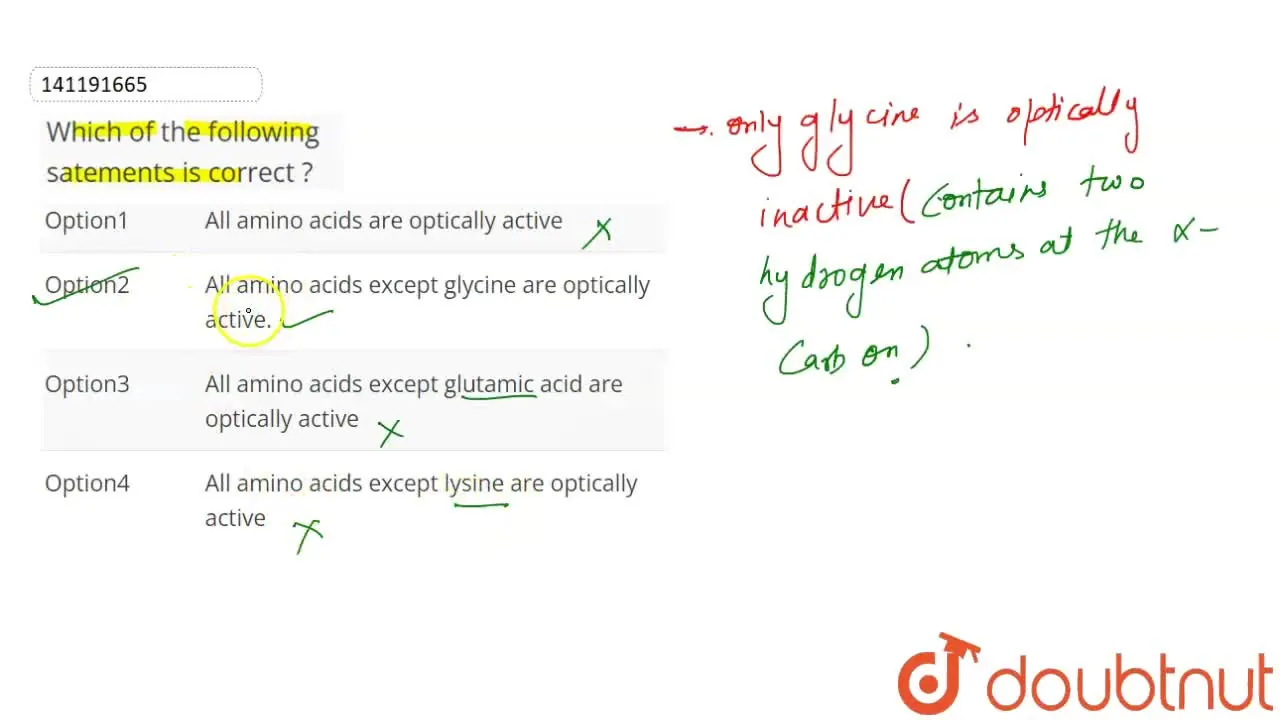 141191665
Which of the following
satements is correct ?
Option1 All amino acids are optically active
Option2 All amino acids except glycine are optically
active.
Option3 All amino acids except glutamic acid are
optically active
Option4 All amino acids except lysine are optically
active
→. only glycine is optically
inactive (contains two
hydrogen atoms at the α-
Carbon).
doubtnut